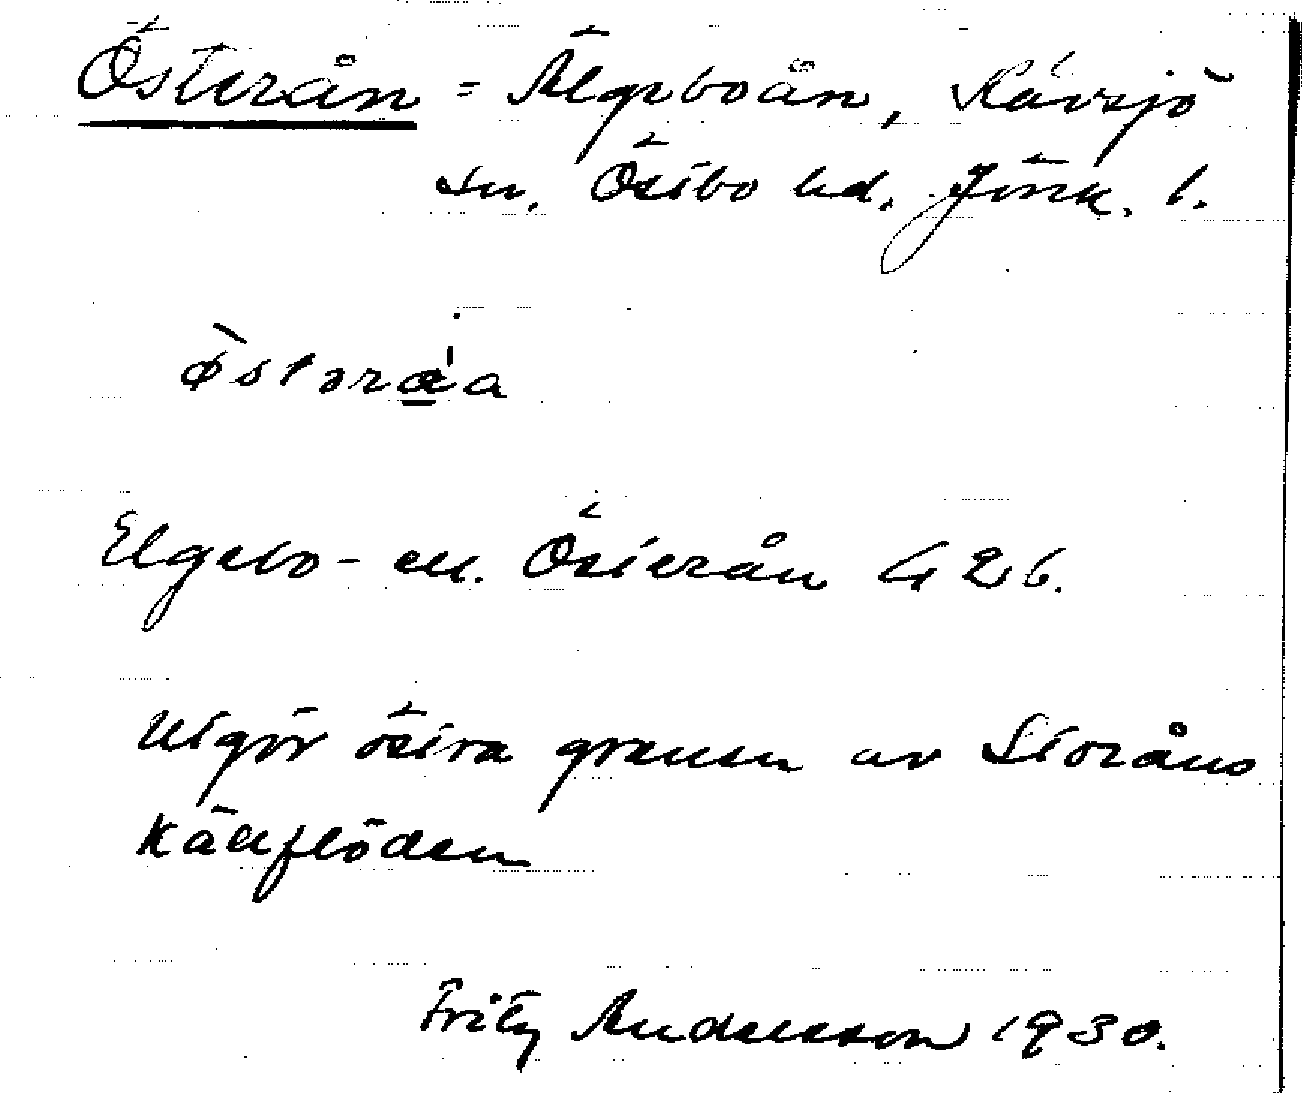 Österån = Älgeboån, Kävsjö
sn, Östbo hd. Jönk. l.
östəråa
Elgebo- ell. Österån G 26.
Utgör östra grenen av Storåns
källflöden
Fritz Andersson 1930.